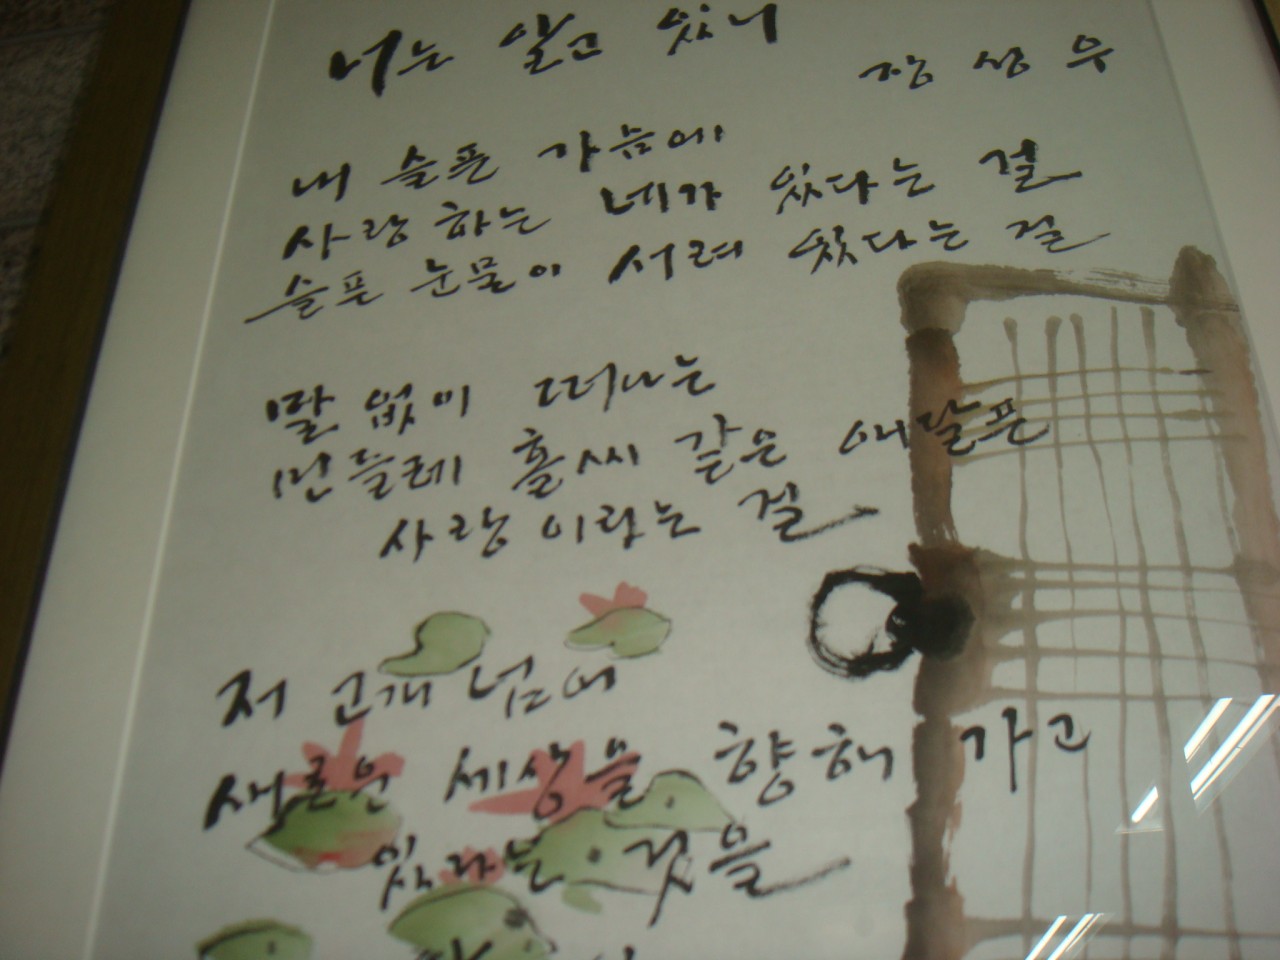 너는 알고 있니
장상우
내 슬픈 가슴에
사랑하는 네가 있다는 걸
슬픈 눈물이 서려 있다는 걸
말없이 떠나는
민들레 홀씨 같은 애달픈
사랑이라는 걸
저 고개 넘어
새로운 세상을 향해 가고
있다는 것을